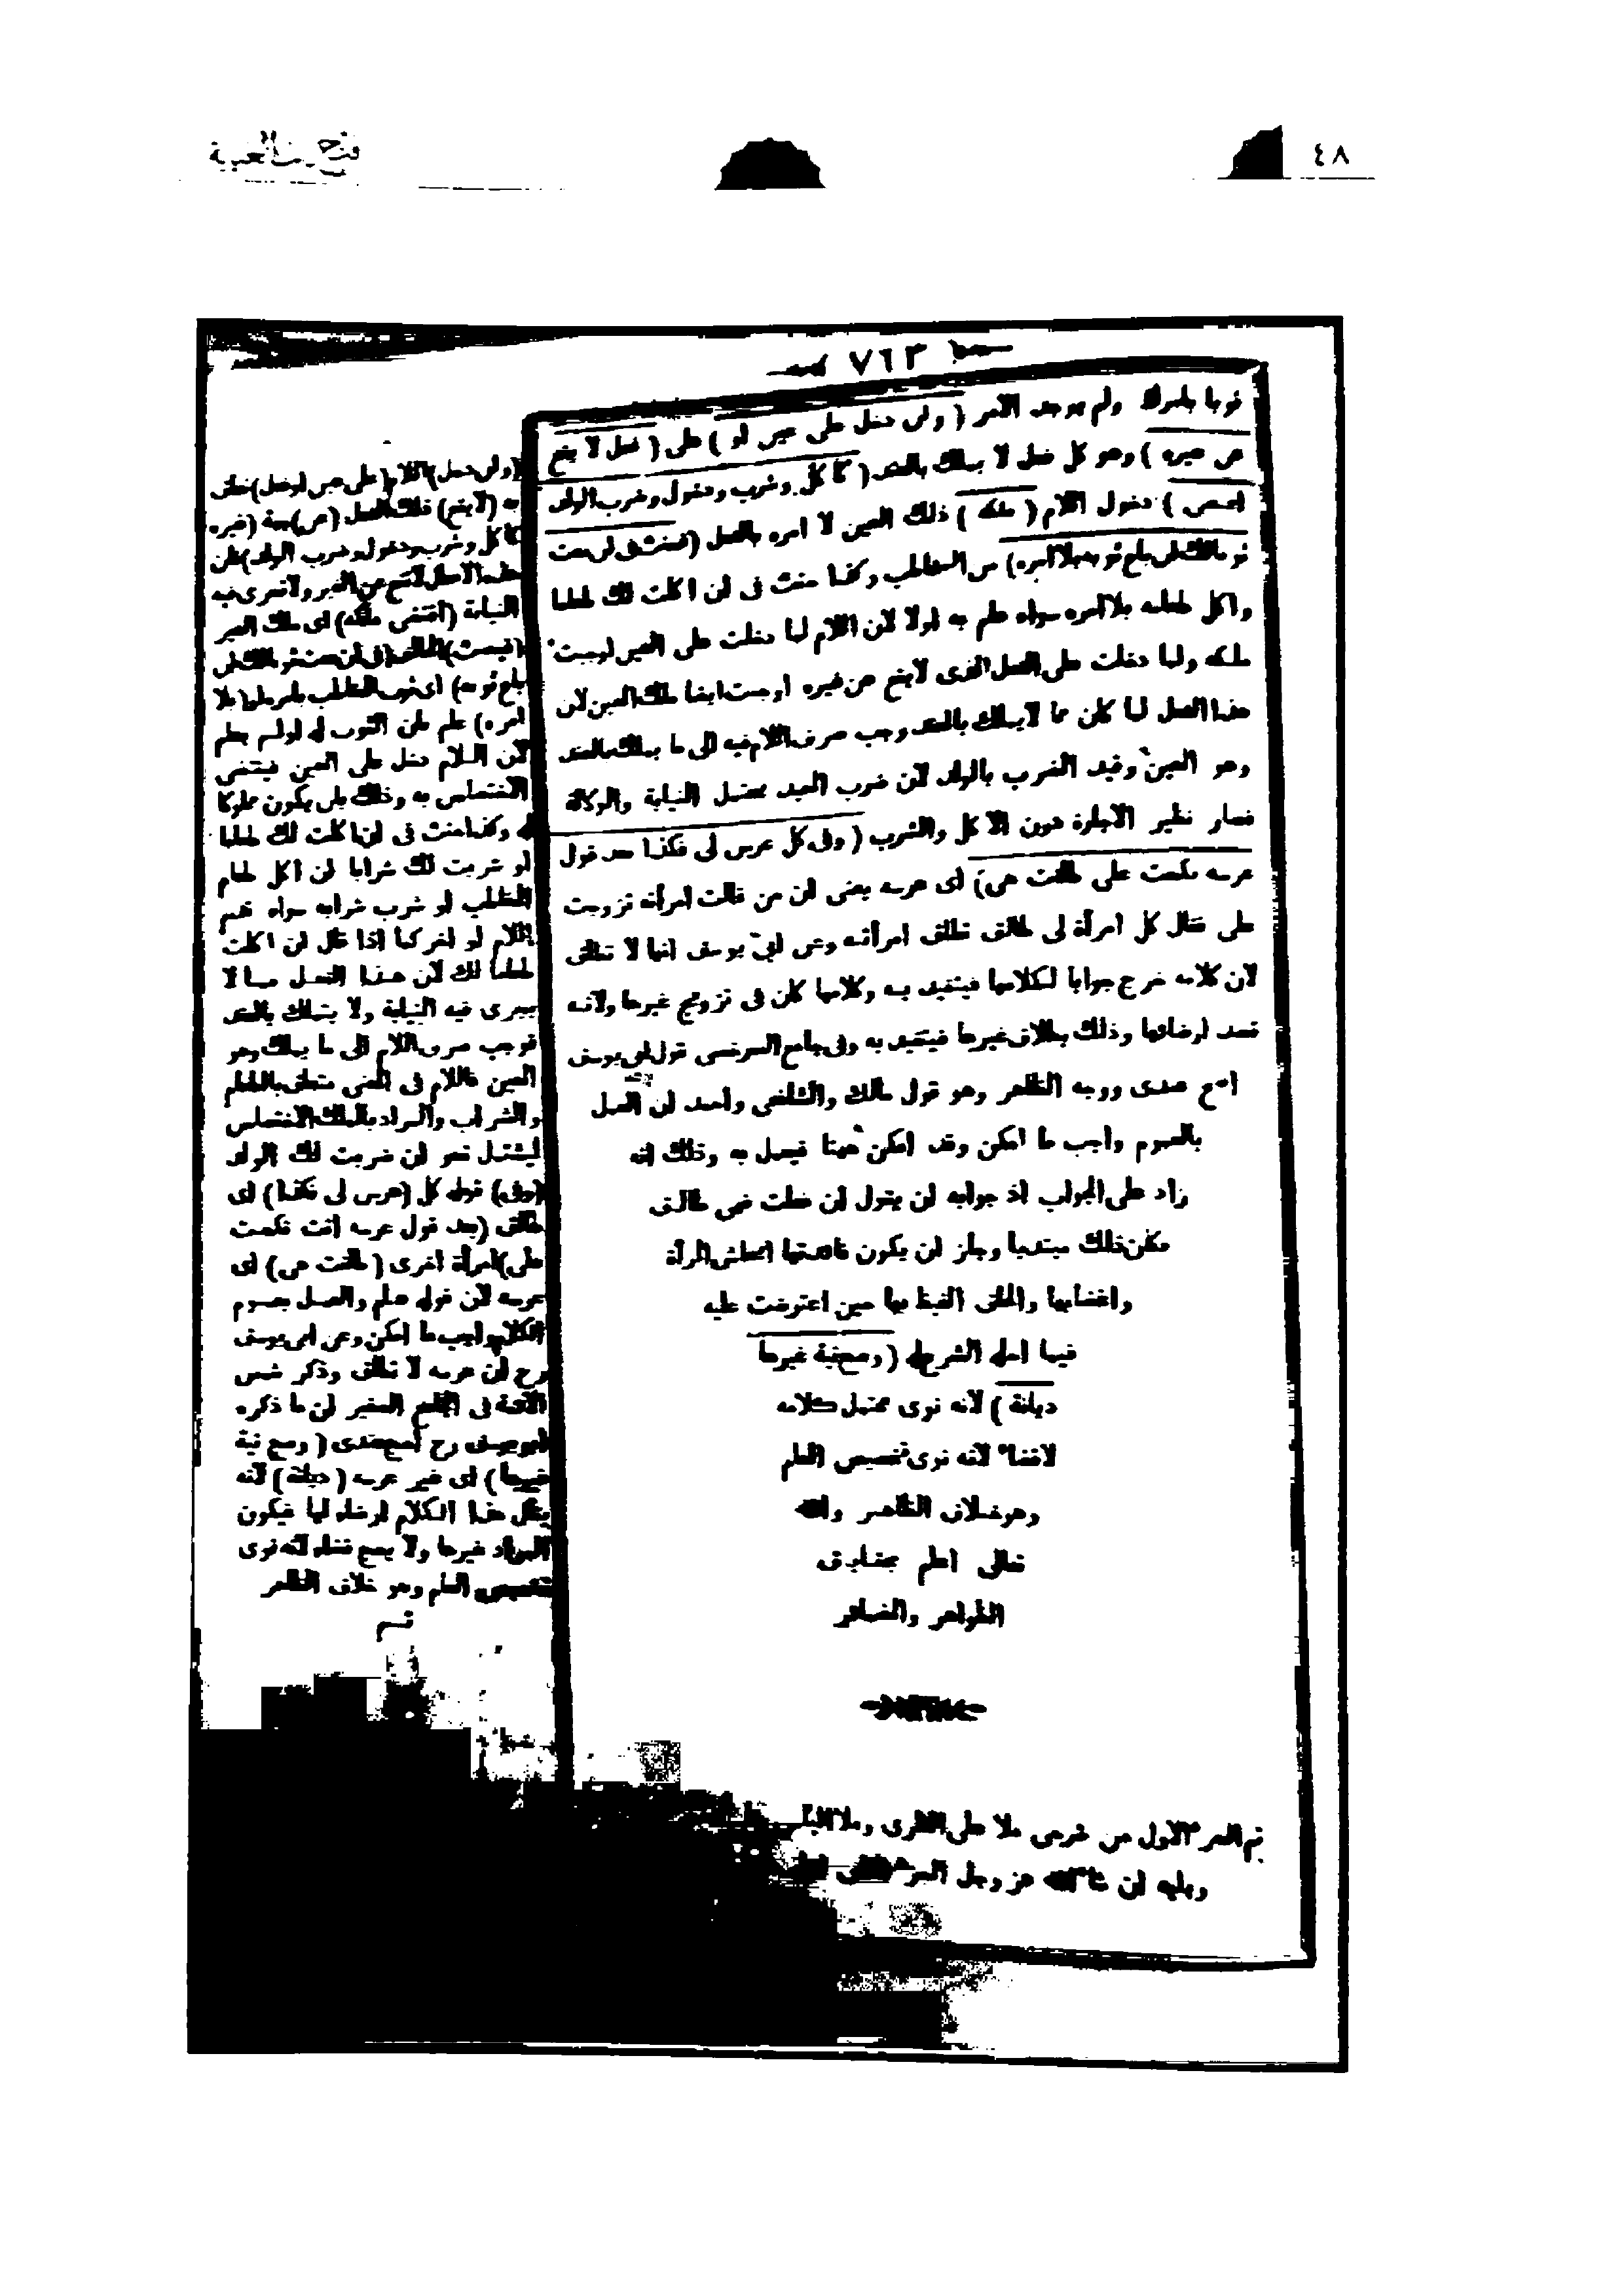 ٤٨
٧٦٣
ثوبا بامرك ولم يوجد الامر ( وان دخل على عين او ) على ( فعل لا يقع
عن غيره ) وهو كل فعل لا يملك بالعقد ( كاكل وشرب ودخول وضرب الولد
اقتضى ) دخول اللام ( ملكه ) ذلك العين لا امره بالفعل ( فحنث فى ان بعت
ثوبا لك ان باع ثوبه بلا امره ) من المخاطب وكذا حنث فى ان اكلت لك طعاما
واكل طعامه بلا امره سواء علم به اولا لان اللام لما دخلت على العين اوجبت
ملكه ولما دخلت على الفعل الذى لا يقع عن غيره اوجبت ايضا ملك العين لان
هذا الفعل لما كان مما لا يملك بالعقد وجب صرف اللام فيه الى ما يملك بالعقد
وهو العين وقيد الضرب بالولد لان ضرب العبد يحتمل النيابة والوكالة
فصار نظير الاجارة دون الاكل والشرب ( وفى كل عرس لى فكذا بعد قول
عرسه نكحت على طلقت هى ) اى عرسه يعنى ان من قالت امرأته تزوجت
على فقال كل امرأة لى طالق تطلق امرأته وعن ابى يوسف انها لا تطلق
لان كلامه خرج جوابا لكلامها فيتقيد به وكلامها كان فى تزويج غيرها ولانه
قصد ارضائها وذلك بطلاق غيرها فيتقيد به وفى جامع السرخسى قول ابى يوسف
اصح عندى ووجه الظاهر وهو قول مالك والشافعى واحمد ان العمل
بالعموم واجب ما امكن وقد امكن ههنا فيعمل به وذلك انه
زاد على الجواب اذ جوابه ان يقول ان فعلت فهى طالق
فكان ذلك مبتدئا وجاز ان يكون فائدتها ايحاش المرأة
واغضابها والحاق الغيظ بها حين اعترضت عليه
فيما احله الشرع له ( وصح نية غيرها
ديانة ) لانه نوى محتمل كلامه
لاقضاء لانه نوى تخصيص العام
وهو خلاف الظاهر والله
تعالى اعلم بحقايق
الظواهر والضمائر
تم الجزء الاول من شرحى ملا على القارى وملا
ويليه ان شاء الله عز وجل الجزء الثانى
( وان دخل ) اللام ( على عين او فعل ) متعلق
به ( لا يقع ) ذلك الفعل ( عن ) جهة ( غيره
كاكل وشرب ودخول وضرب الولد ) فان
هذه الافعال لا تقع عن الغير ولا تجرى فيه
النيابة ( اقتضى ملكه ) اى ملك الغير
( فيحنث ) الحالف ( فى ان بعت ثوبا لك ان
باع ثوبه ) اى ثوب المخاطب ( بلا
امره ) علم بان الثوب له او لم يعلم
لان اللام دخل على العين فيقتضى
الاختصاص به وذلك بان يكون مملوكا
له وكذا حنث فى ان اكلت لك طعاما
او شربت لك شرابا ان اكل طعام
المخاطب او شرب شرابه سواء قدم
اللام او اخر كما اذا قال ان اكلت
طعاما لك لان هذا الفعل مما لا
يجرى فيه النيابة ولا يتملك بالعقد
فوجب صرف اللام الى ما يملك وهو
العين فاللام فى المعنى متعلق بالطعام
والشراب والمراد بالملك الاختصاص
ليشتمل نحو ان ضربت لك الولد
( وفى ) قوله كل ( عرس لى فكذا ) اى
طالق ( بعد قول عرسه انت نكحت
على ) امرأة اخرى ( طلقت هى ) اى
عرسه لان قوله عام والعمل بعموم
الكلام واجب ما امكن وعن ابى يوسف
رح ان عرسه لا تطلق وذكر شمس
الائمة فى الجامع الصغير ان ما ذكره
ابو يوسف رح اصح عندى ( وصح نية
غيرها ) اى غير عرسه ( ديانة ) لانه
يقال هذا الكلام ارضاء لها فيكون
المراد غيرها ولا يصح قضاء لانه نوى
تخصيص العام وهو خلاف الظاهر
تم